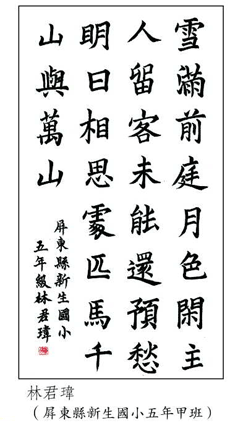 雪滿前庭月色閑主
人留客未能還預愁
明日相思處匹馬千
山與萬山
屏東縣新生國小
五年級林君瑋
林君瑋
（屏東縣新生國小五年甲班）